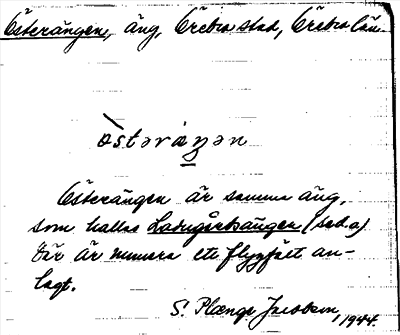 Österängen, äng, Örebro stad, Örebro län.
òstəräŋən
Österängen är samma äng,
som kallas Ladugårdsängen (se d.o)
Där är numera ett flygfält an-
lagt.
S. Plænge Jacobson, 1944.